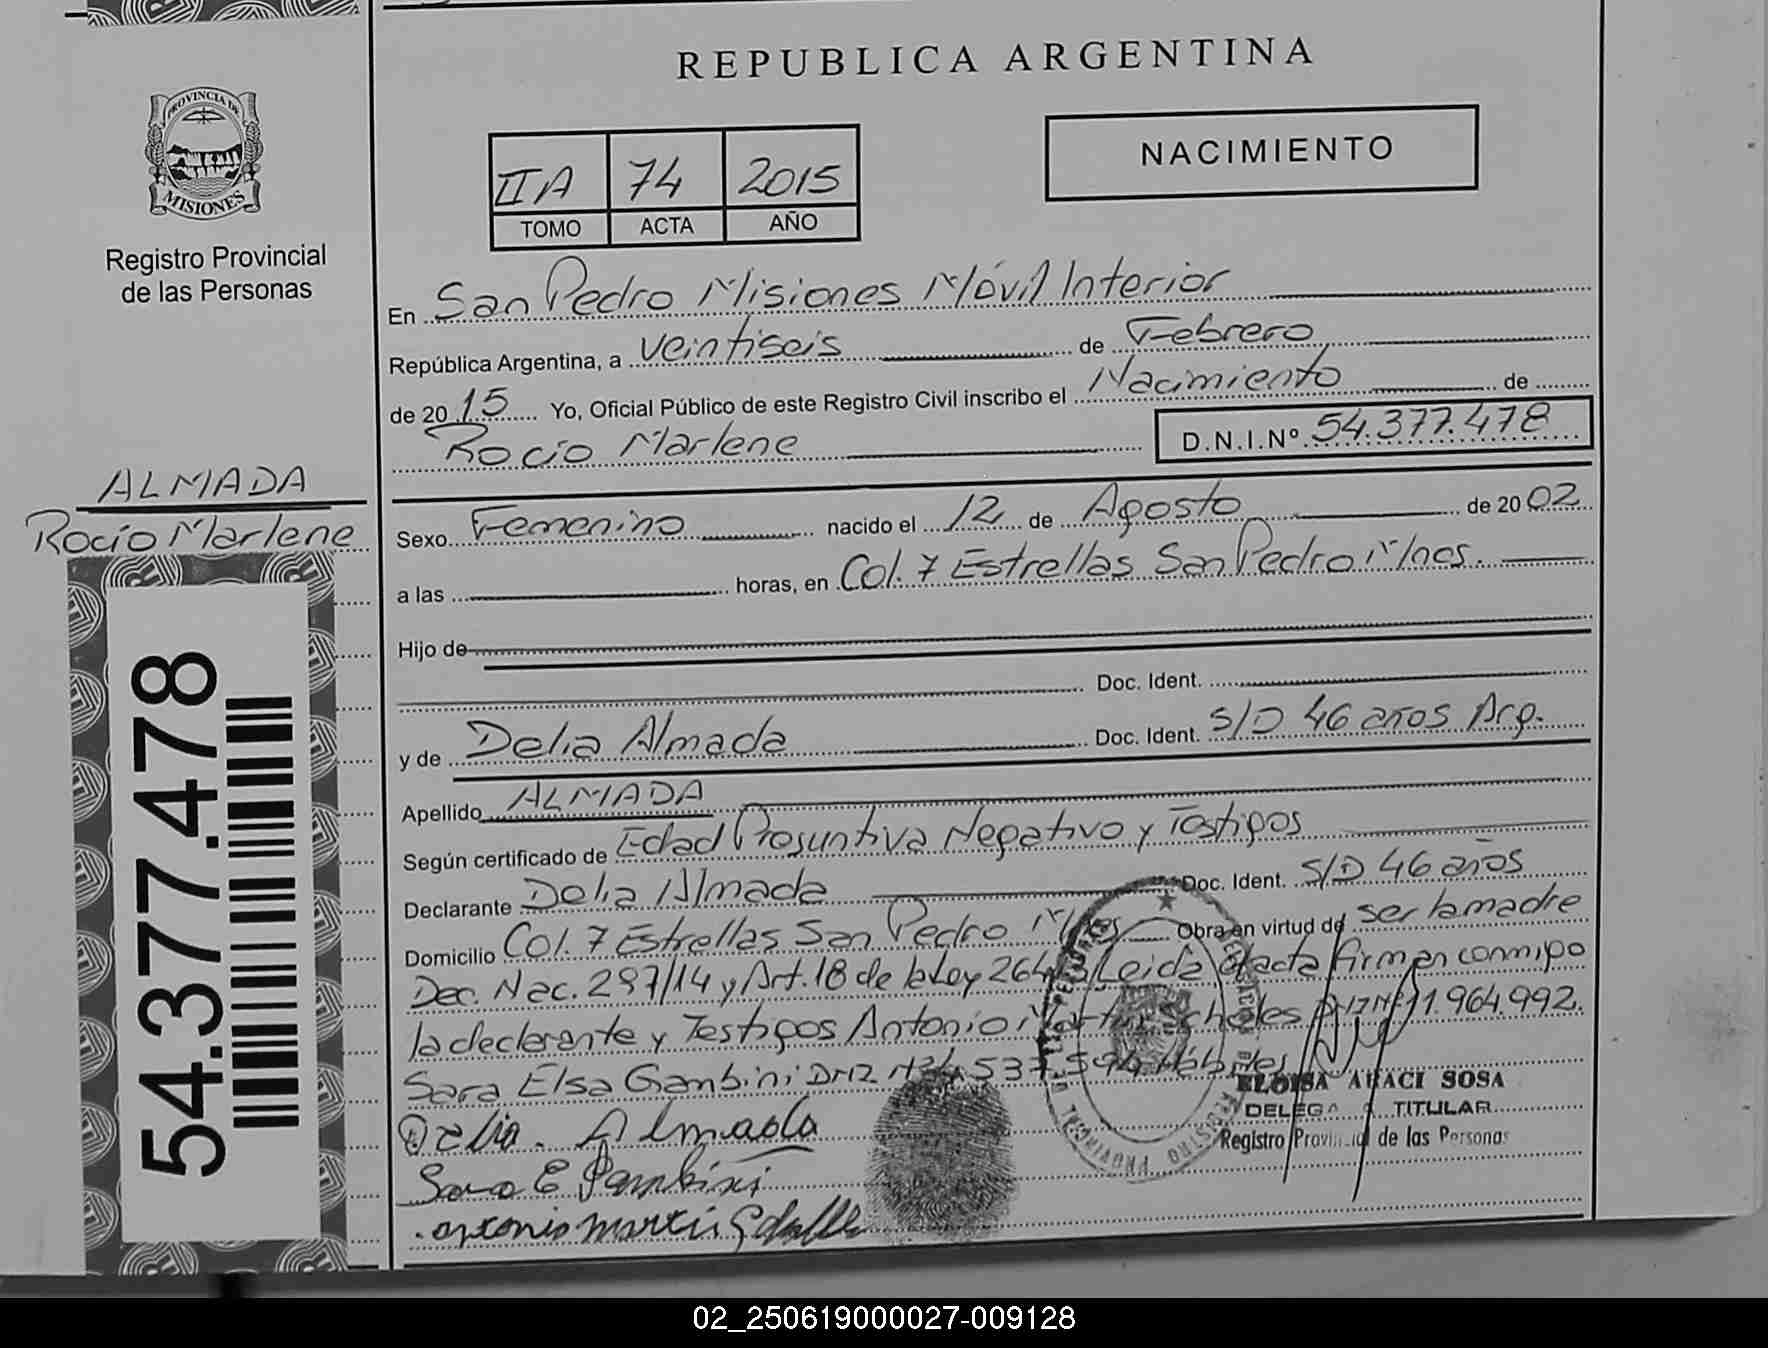 REPUBLICA ARGENTINA
PROVINCIA DE MISIONES
Registro Provincial
de las Personas
IIA 74 2015
TOMO ACTA AÑO
NACIMIENTO
En San Pedro Misiones Móvil Interior
República Argentina, a veintiseis de Febrero
de 2015 Yo, Oficial Público de este Registro Civil inscribo el Nacimiento de
Rocío Marlene D.N.I.Nº 54.377.478
ALMADA
Rocío Marlene
Sexo Femenino nacido el 12 de Agosto de 2002
a las horas, en Col. 7 Estrellas San Pedro Mnes.
Hijo de
Doc. Ident.
y de Delia Almada Doc. Ident. S/D 46 años Arg.
Apellido ALMADA
Según certificado de Edad Presuntiva Negativo y Testigos
Declarante Delia Almada Doc. Ident. S/D 46 años
Domicilio Col. 7 Estrellas San Pedro Mnes Obra en virtud de ser la madre
Dec. Nac. 297/14 y Art. 18 de la Ley Leida el acta firman conmigo
la declarante y Testigos Antonio 11.964.992.
Sara Elsa Gambini Hábiles
Delia. Almada
Sara E Gambini
antonio martir
ELOISA ARACI SOSA
DELEGADA TITULAR
Registro Provincial de las Personas
54.377.478
02_250619000027-009128